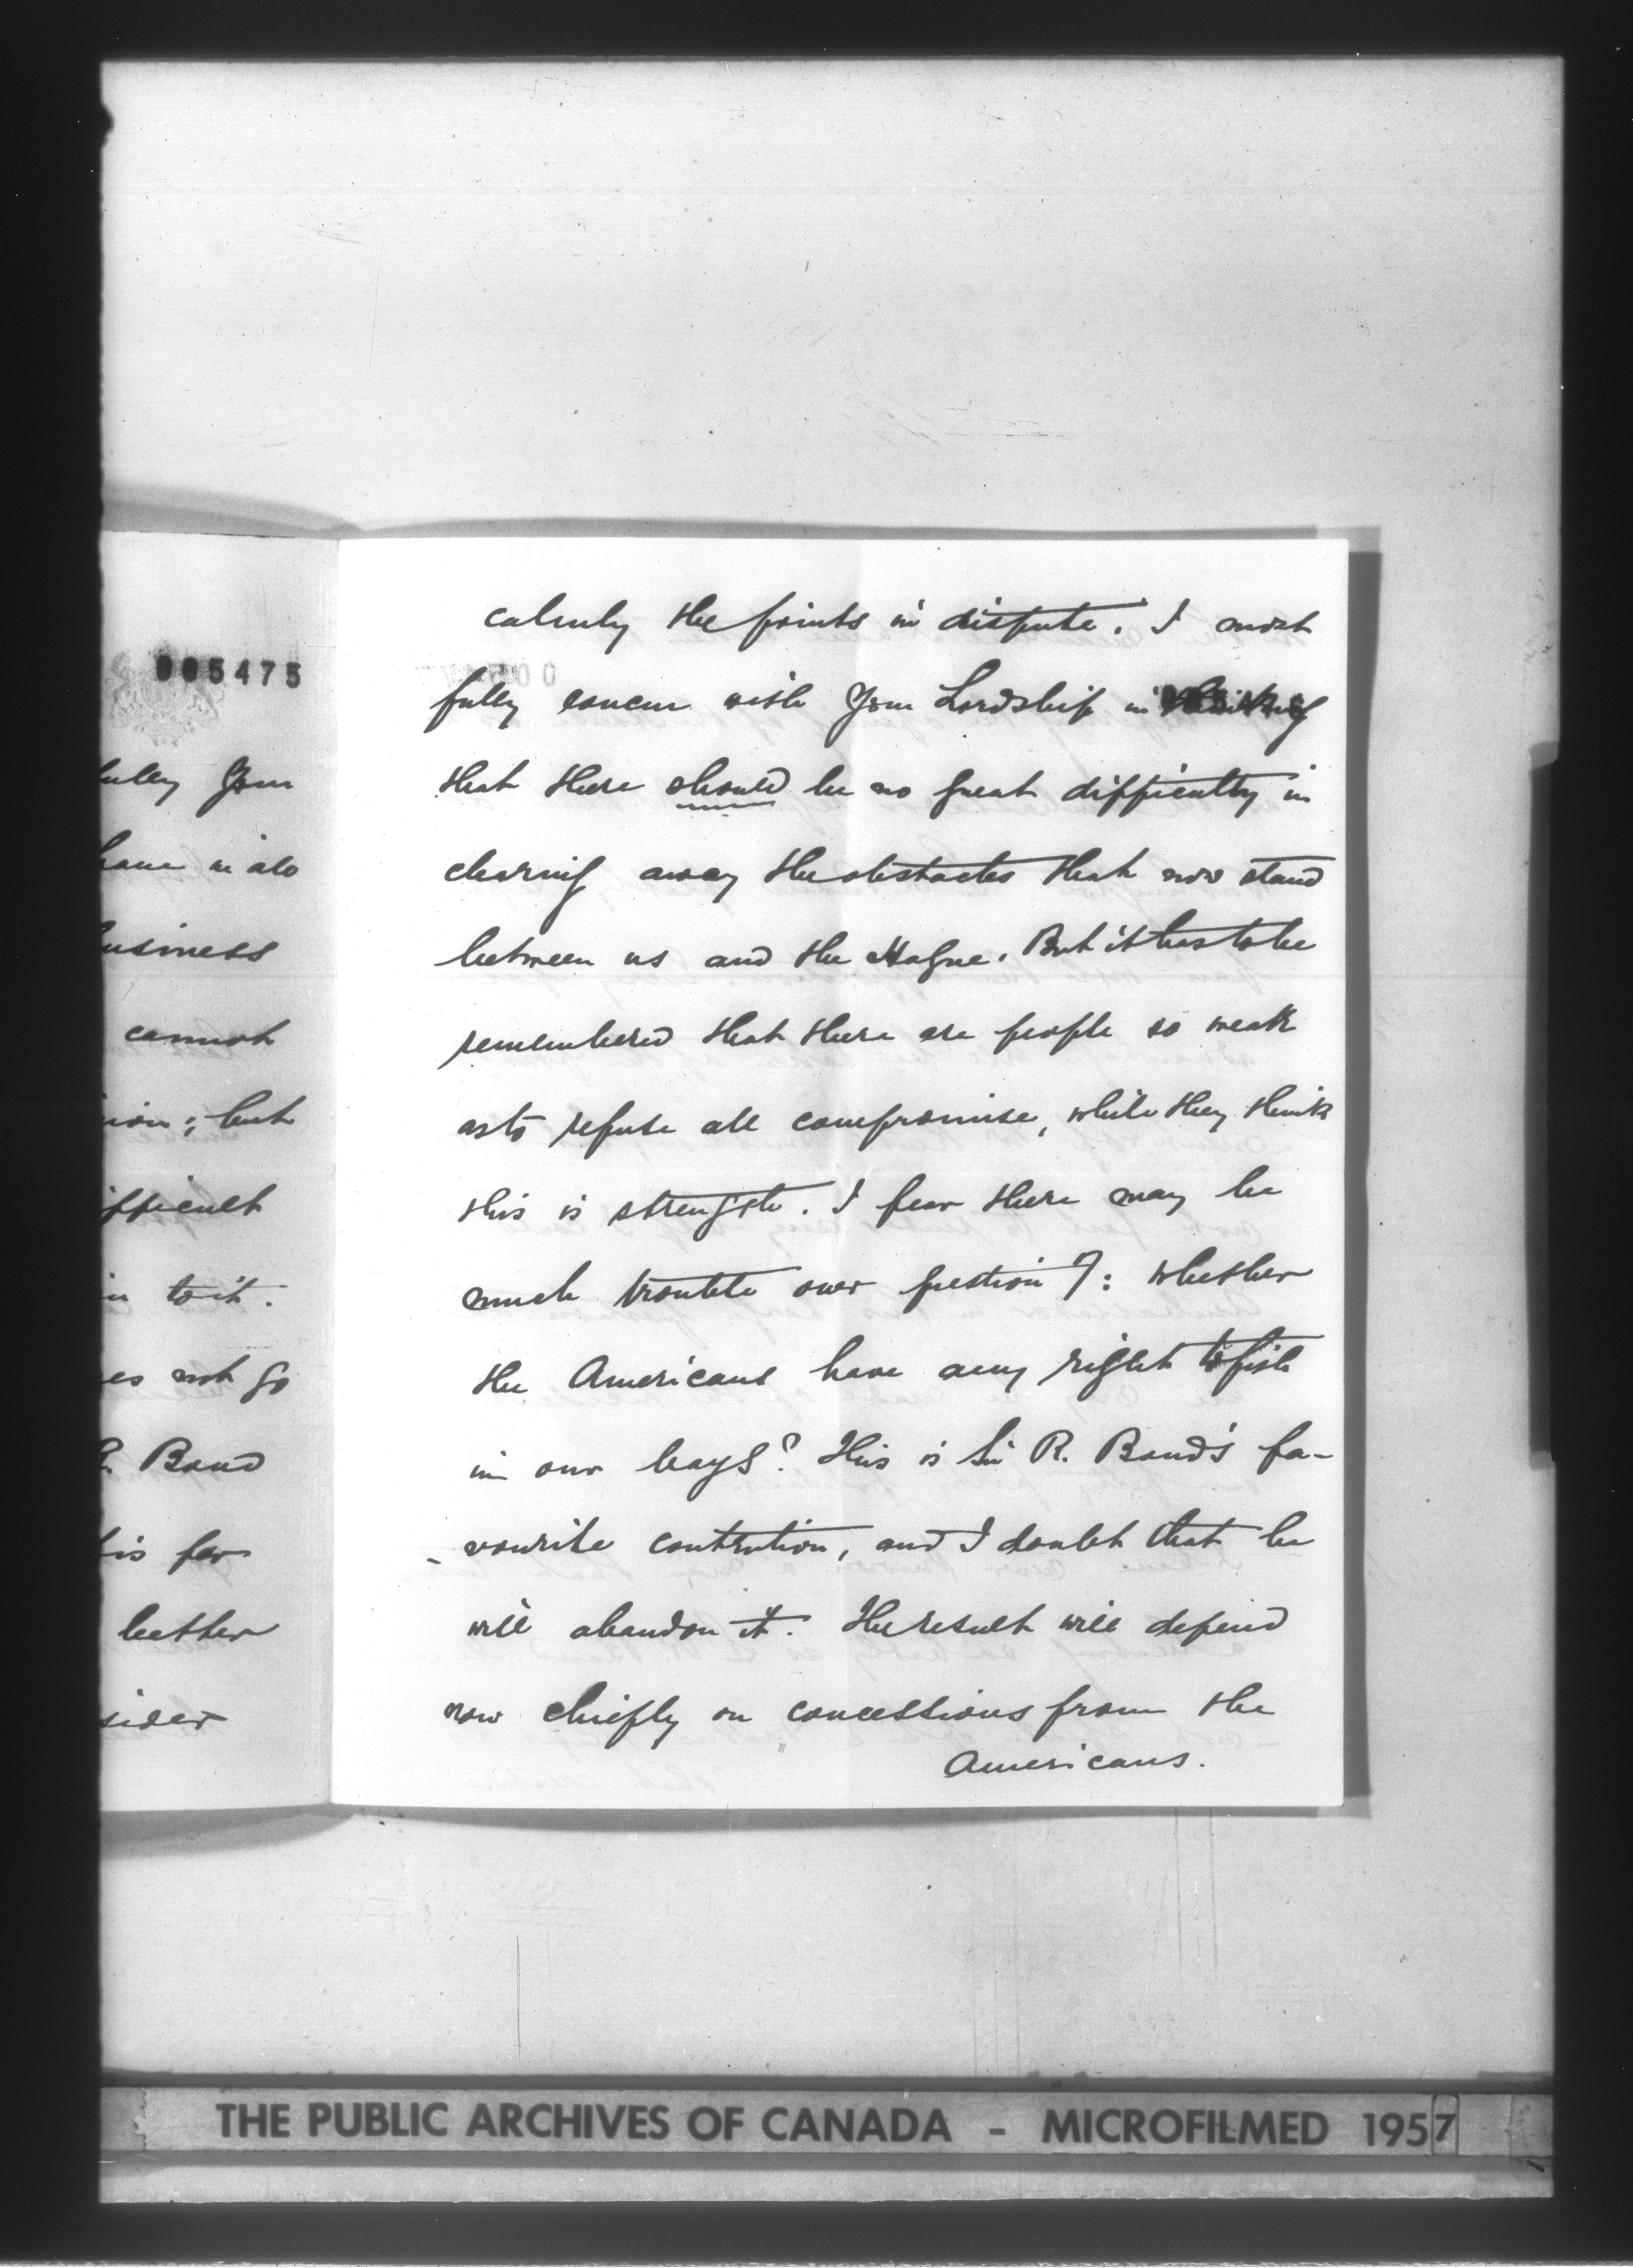 005475
fully Your
have in alo
business
cannot
ion; but
ifficult
in to it.
es not go
R. Bond
his far
better
sider
calmly the points in dispute. I most
fully concur with Your Lordship in thinking
that there should be no great difficulty in
clearing away the obstacles that now stand
between us and the Hague. But it has to be
remembered that there are people so weak
as to refuse all compromise, while they think
this is strength. I fear there may be
much trouble over question 7: whether
the Americans have any right to fish
in our bays? This is Sir R. Bond's fa-
-vourite contention, and I doubt that he
will abandon it. The result will depend
now chiefly on concessions from the
Americans.
THE PUBLIC ARCHIVES OF CANADA - MICROFILMED 1957